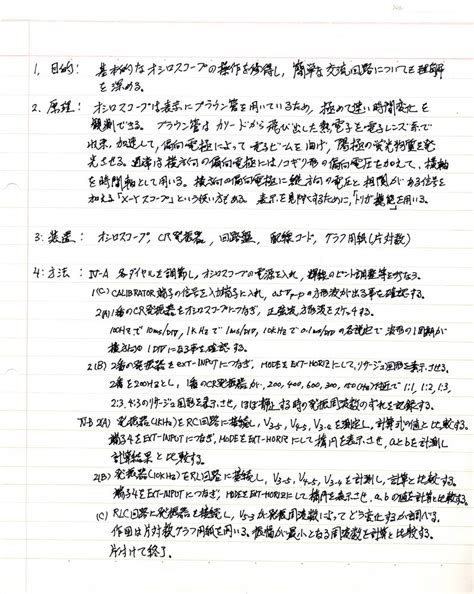 1. 目的: 基本的なオシロスコープの操作を修得し, 簡単な交流回路についても理解
を深める。
2. 原理: オシロスコープは表示にブラウン管を用いているため, 極めて速い時間変化を
観測できる。ブラウン管はカソードから飛び出した熱電子を電子レンズ系で
収束, 加速して, 偏向電極によって電子ビームを曲げ, 陽極の蛍光物質を発
光させる。通常は横方向の偏向電極にはノコギリ形の偏向電圧を加えて, 横軸
を時間軸として用いる。横方向の偏向電極に縦方向の電圧と相関がある信号を
加える「X-Yスコープ」という使い方もある。表示を見やすくするために,「トリガ機能」を用いる。
3. 装置: オシロスコープ, CR発振器, 回路盤, 配線コード, グラフ用紙(片対数)
4. 方法: IV-A 各ダイヤルを調節し, オシロスコープの電源を入れ, 輝線のピント調整等を行なう。
1(C) CALIBRATOR端子の信号を入力端子に入れ, 0.5Vp-pの方形波が出る事を確認する。
2(A) 1番のCR発振器をオシロスコープにつなぎ, 正弦波, 方形波をスケッチする。
100Hzで10ms/DIV, 1KHzで1ms/DIV, 10KHzで0.1ms/DIVの各設定で波形の1周期が
横方向の1DIVになる事を確認する。
2(B) 2番の発振器をEXT-INPUTにつなぎ, MODEをEXT-HORIZにして, リサージュ図形を表示させる。
2番を200Hzとし, 1番のCR発振器が, 200, 400, 600, 300, 150(Hz)付近で1:1, 1:2, 1:3,
2:3, 4:3のリサージュ図形を表示させ, ほぼ静止する時の発振周波数のずれを記録する。
IV-B 2(A) 発振器(1KHz)をRC回路に接続し, V3-5, V4-5, V3-4を測定し, 計算式の値と比較する。
端子4をEXT-INPUTにつなぎ, MODEをEXT-HORIZにして楕円を表示させ, aとbを計測し
計算結果と比較する。
2(B) 発振器(10KHz)をRL回路に接続し, V3-5, V4-5, V3-4を計測し, 計算と比較する。
端子4をEXT-INPUTにつなぎ, MODEをEXT-HORIZにして楕円を表示させ, a, bの値を計算と比較する。
(C) RLC回路に発振器を接続し, V5-3が発振周波数によってどう変化するか調べる。
作図は片対数グラフ用紙を用いる。振幅が最小となる周波数を計算と比較する。
片付けて終了。